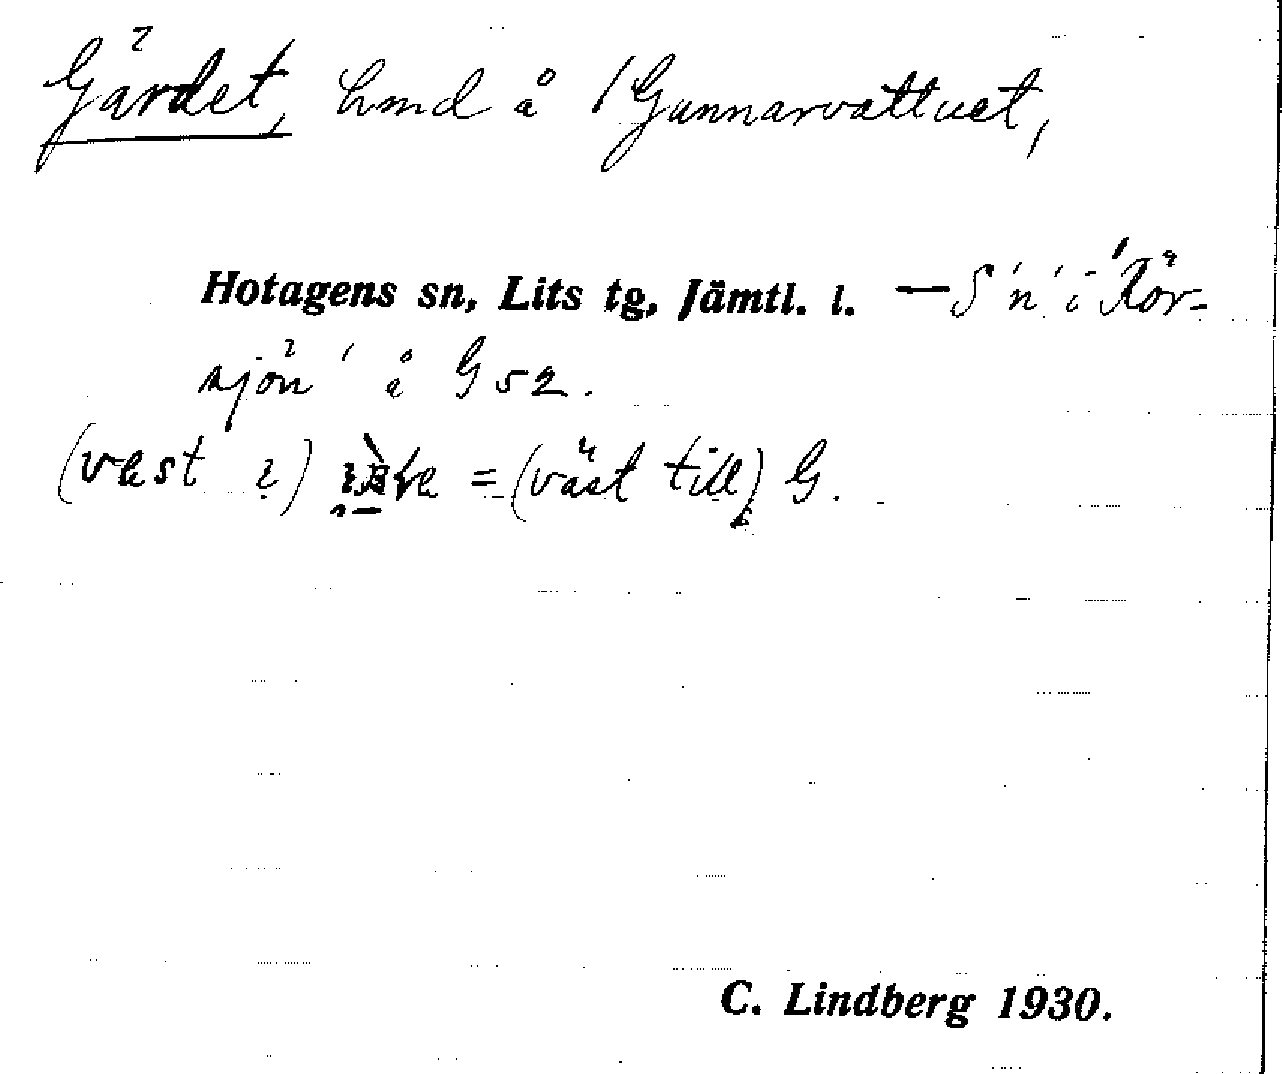 Gärdet, hmd å Gunnarvattnet,
Hotagens sn, Lits tg, Jämtl. l. — S 'n' i Rör-
sjön ' å G 52.
(vest ) = (väst till) G.
C. Lindberg 1930.